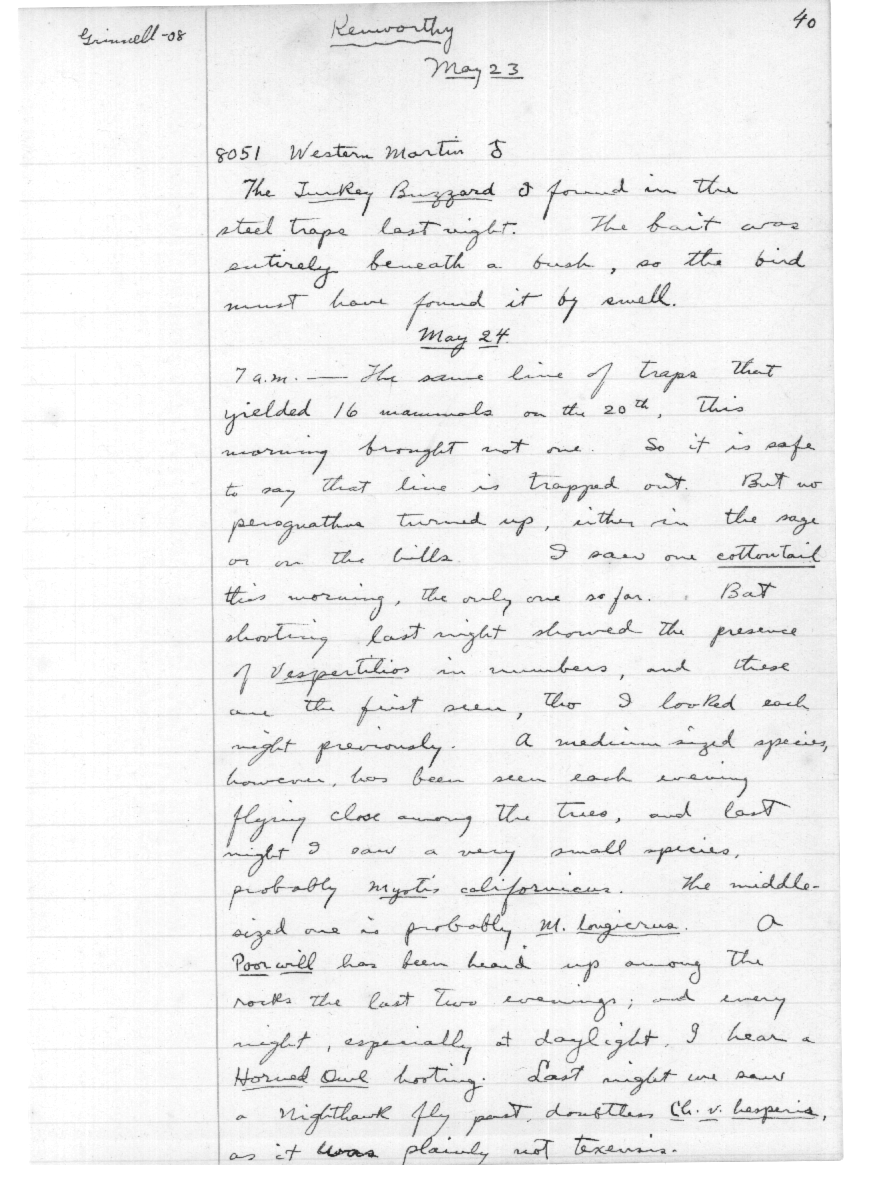 Grinnell-08
Kenworthy
40
May 23
8051 Western Martin ♂
The Turkey Buzzard I found in the
steel traps last night. The bait was
entirely beneath a bush, so the bird
must have found it by smell.
May 24.
7 a.m. — The same line of traps that
yielded 16 mammals on the 20th, this
morning brought not one. So it is safe
to say that line is trapped out. But no
perognathus turned up, either in the sage
or on the hills. I saw one cottontail
this morning, the only one so far. Bat
shooting last night showed the presence
of Vespertilios in numbers, and these
are the first seen, tho I looked each
night previously. A medium sized species,
however, has been seen each evening
flying close among the trees, and last
night I saw a very small species,
probably Myotis californicus. The middle-
sized one is probably M. longicrus. A
Poorwill has been heard up among the
rocks the last two evenings; and every
night, especially at daylight, I hear a
Horned Owl hooting. Last night we saw
a Nighthawk fly past, doubtless Ch. v. hesperis,
as it was plainly not texensis.